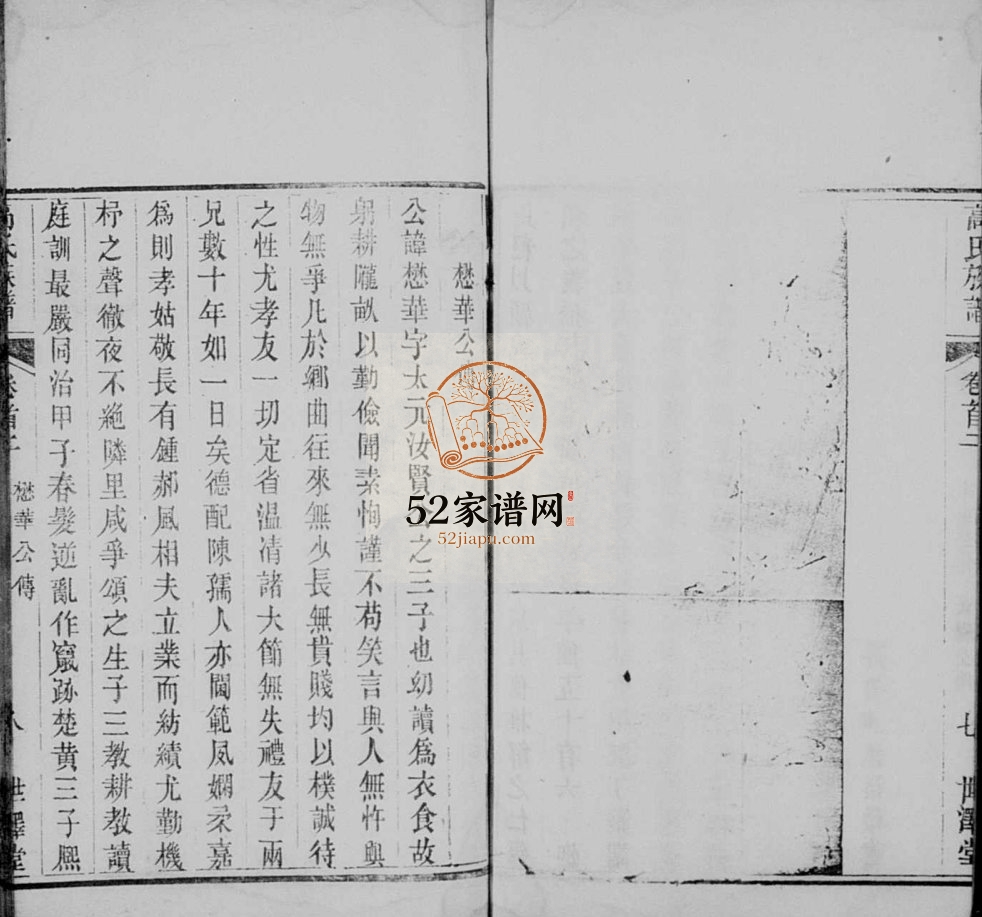 氏族譜 卷首二 七 世澤堂
懋華公
公諱懋華字太元汝賢公之三子也幼讀爲衣食故
躬耕隴畝以勤儉聞素恂謹不苟笑言與人無忤與
物無爭凡於鄉曲往來無少長無貴賤均以樸誠待
之性尤孝友一切定省温凊諸大節無失禮友于兩
兄數十年如一日矣德配陳孺人亦閫範夙嫻柔嘉
爲則孝姑敬長有鍾郝風相夫立業而紡績尤勤機
杼之聲徹夜不絶隣里咸爭頌之生子三教耕教讀
庭訓最嚴同治甲子春髮逆亂作竄跡楚黄三子熙
氏族譜 卷首二 懋華公傳 八 世澤堂
52家谱网
52jiapu.com